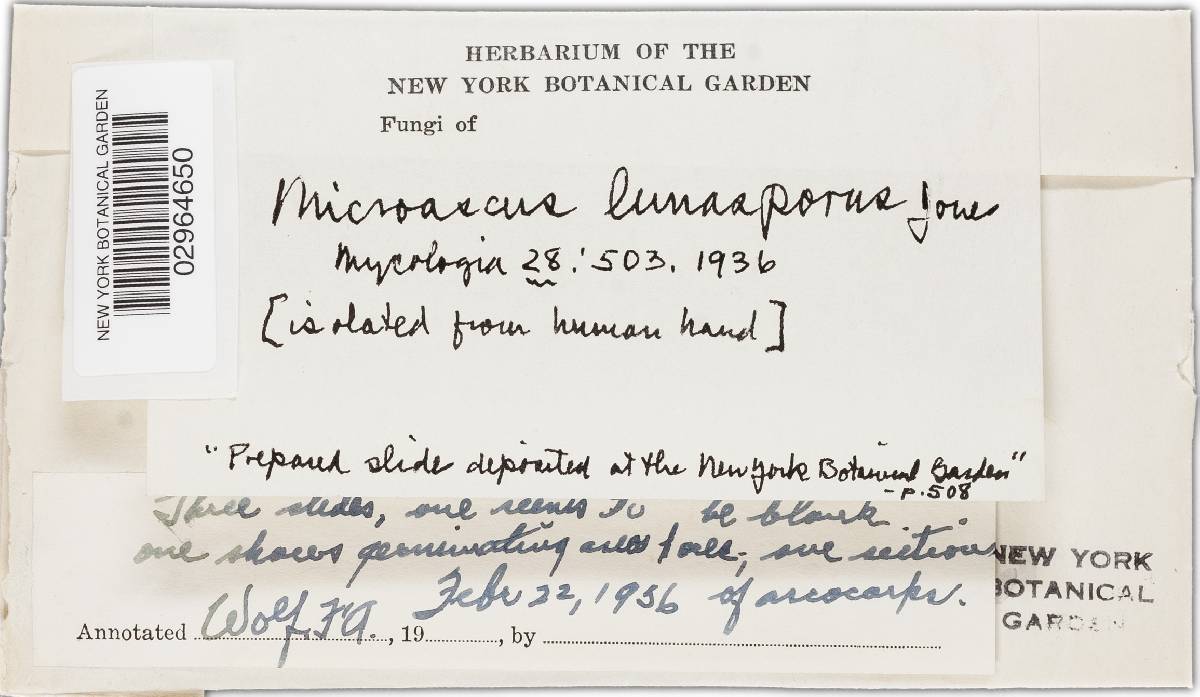 HERBARIUM OF THE
NEW YORK BOTANICAL GARDEN
Fungi of
NEW YORK BOTANICAL GARDEN
02964650
Microascus lunasporus Jones
Mycologia 28:503. 1936
[isolated from human hand]
"Prepared slide deposited at the New York Botanical Garden"
-p.508
Three slides, one seems to be blank.
one shows germinating ; one section
Febr 22, 1956 of ascocarps.
Annotated Wolf, F.A., 19 , by
NEW YORK
BOTANICAL
GARDEN